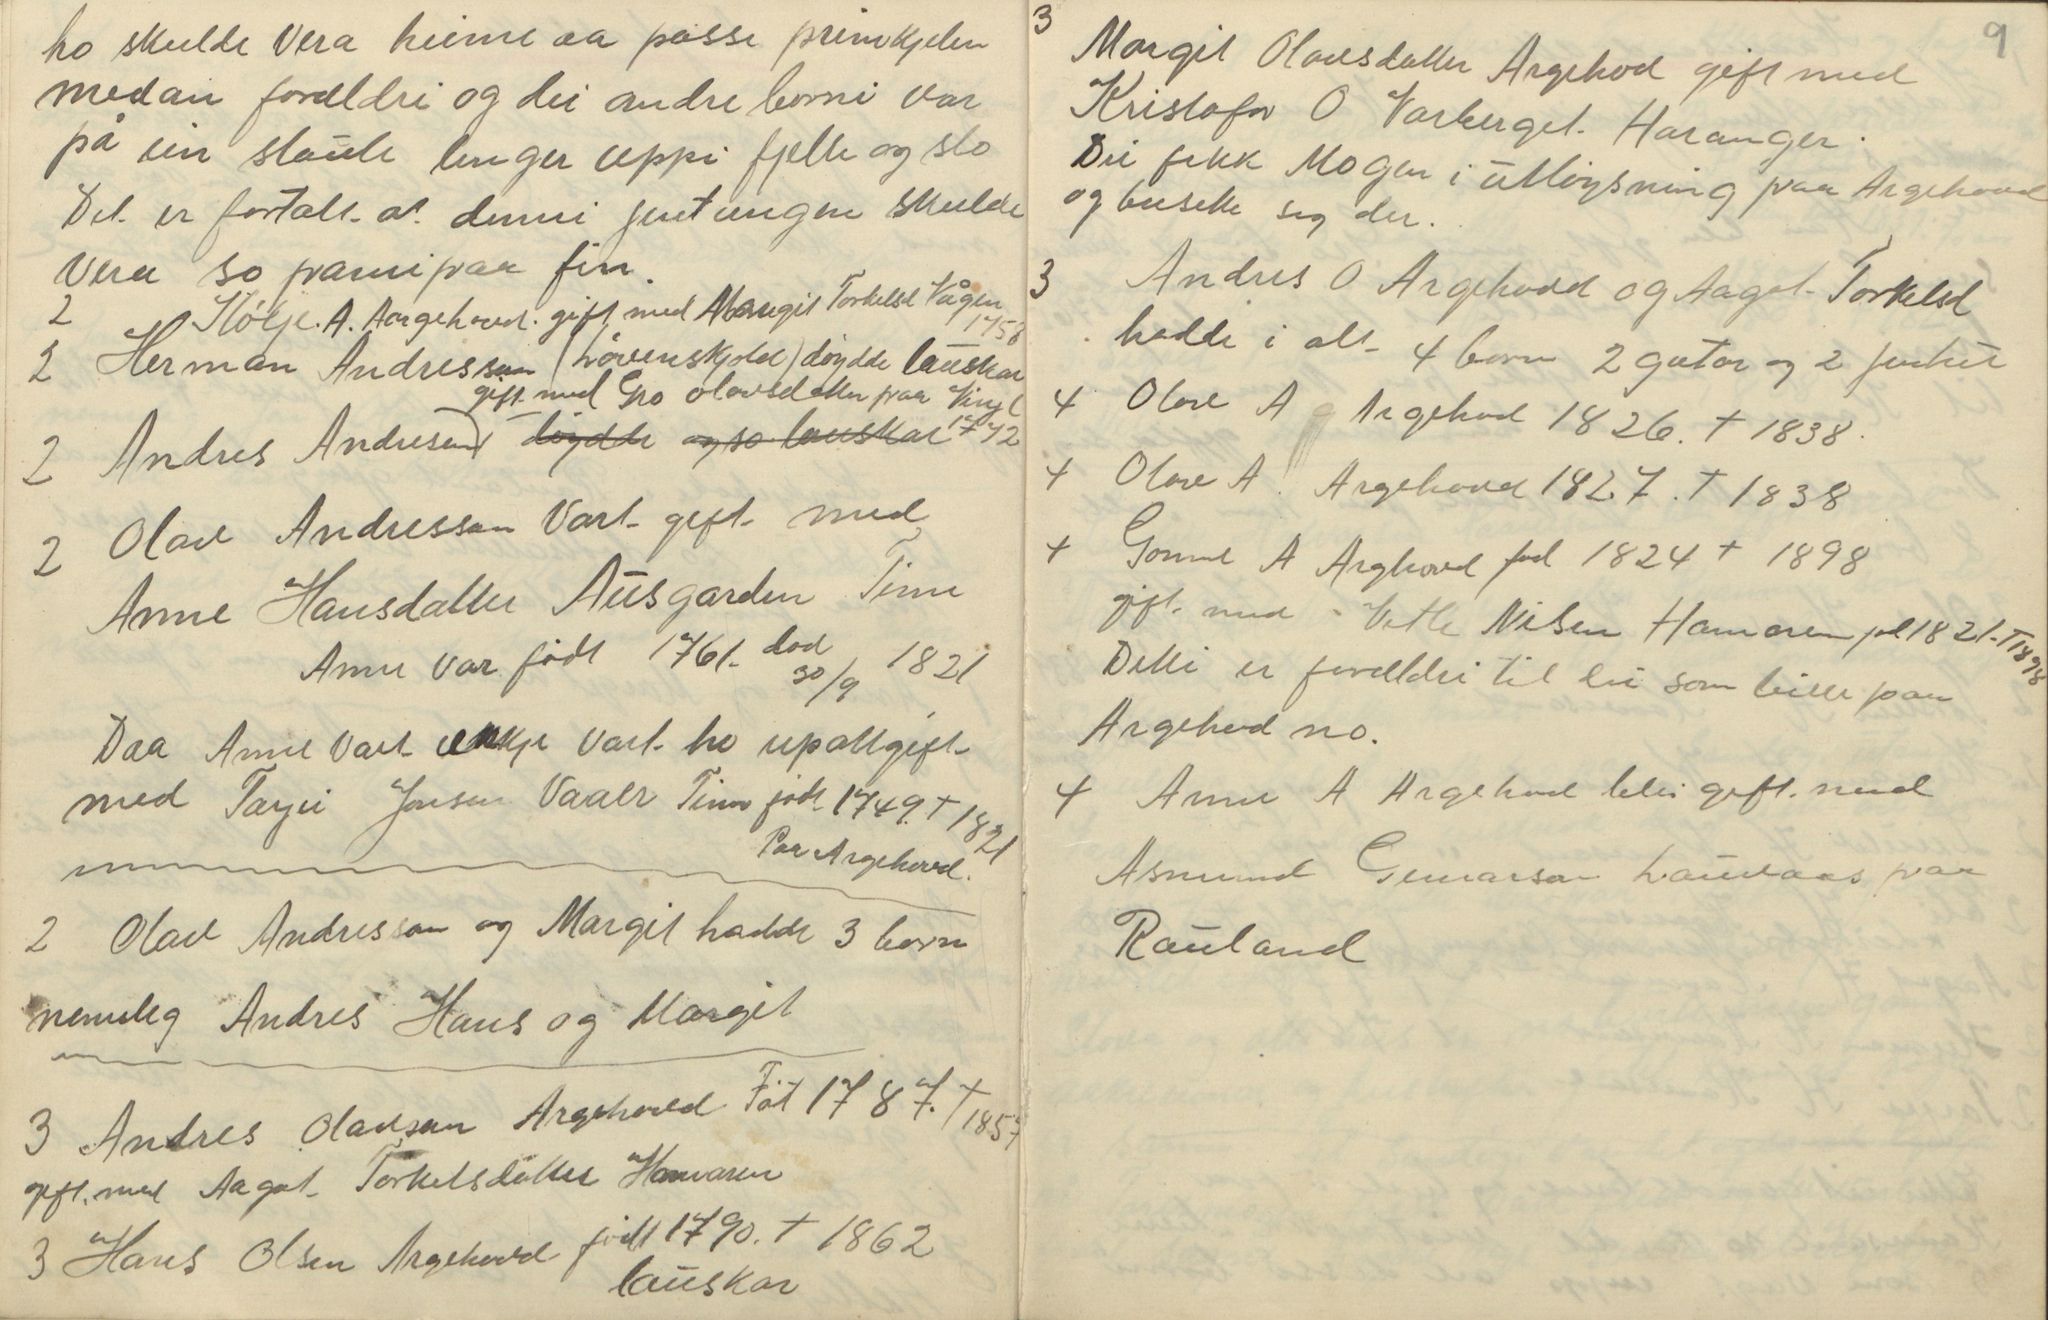 ho skulde vera heime aa passe primkjelen
medan foreldri og dei andre borni var
på ein staule lenger uppi fjelle og slo
Det er fortalt at denni jentungen skulde
vera so paniparaa fin.
2 Hølje. A. Aargehovd. gift med Margit Torkelsd Vågen
1758
2 Herman Andresson (hövenskjold) döydde lauskar
gift med Gro olavsdatter paa Vinje
2 Andres Andresen döydde og so lauskar 1742
2 Olav Andresson Vart gift med
Anne Hansdatter Ausgarden Tinn
Anne var födt 1761. död
30/9 1821
Daa Anne vart enkje vart ho upattgift
med Tarjei Jonsen Vaaer Tinn födt 1749. † 1821
Paa Argehovd.
2 Olav Andresson og Margit hadde 3 born
nemmleg Andres Hans og Margit
3 Andres Olavson Argehovd Föt 1787. † 1857
gift. med Aagot Torkelsdatter Hamaren
3 Hans Olsen Argehovd födt 1790. † 1862
lauskar
9
3
Margit Olavsdatter Argehovd gift med
Kristofer O Varberget Haranger.
Dei fekk Mogen i utløysning paa Argehovd
og busette seg der.
3 Andres O Argehovd og Aagot Torkelsd
hadde i alt 4 born 2 gutar og 2 jentur
4 Olav A Argehovd 1826. † 1838.
4 Olav A. Argehovd 1827. † 1838
4 Gonnil A Arghovd föd 1824 † 1898
gift. med Vetle Nilsen Hamaren föd 1821. † 1898
Detti er foreldri til dei som leiver paa
Argehovd no.
4 Anne A Argehovd blei gift. med
Asmund Gunnarson Lauvaas paa
Rauland